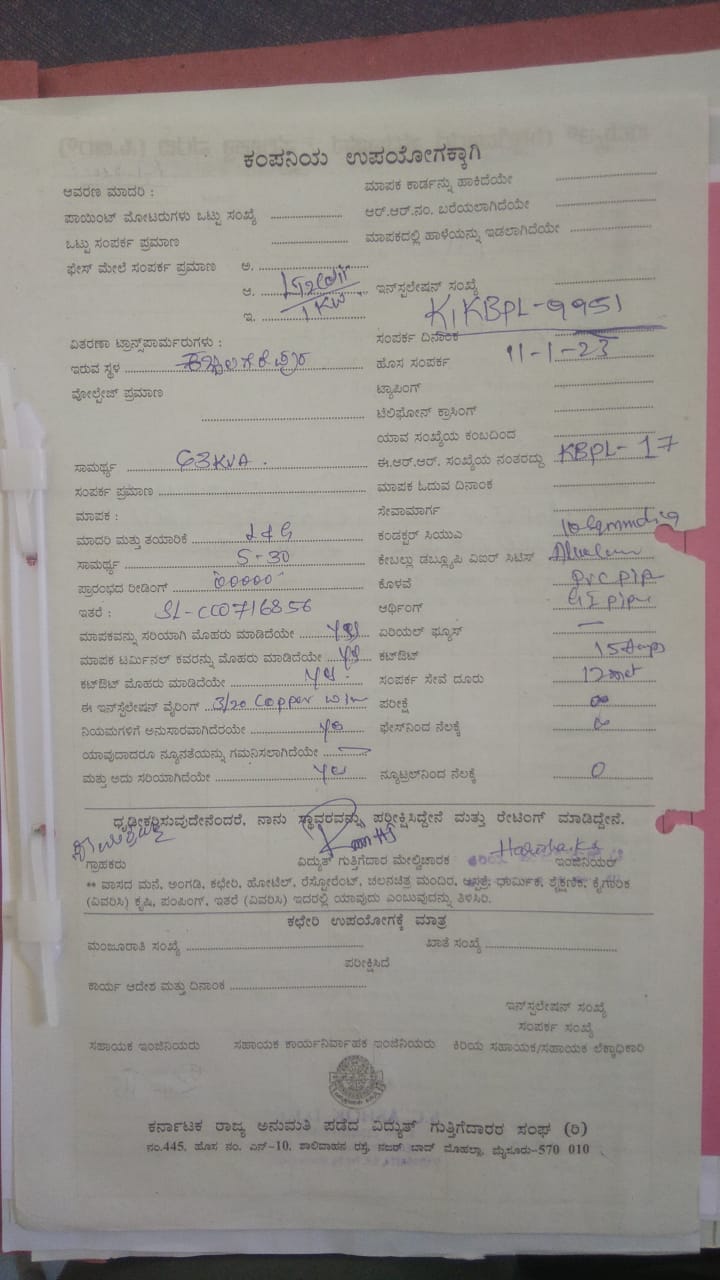 ಕಂಪನಿಯ ಉಪಯೋಗಕ್ಕಾಗಿ
ಆವರಣ ಮಾದರಿ :
ಮಾಪಕ ಕಾರ್ಡನ್ನು ಹಾಕಿದೆಯೇ
ಪಾಯಿಂಟ್ ಮೋಟರುಗಳು ಒಟ್ಟು ಸಂಖ್ಯೆ
ಆರ್.ಆರ್.ನಂ. ಬರೆಯಲಾಗಿದೆಯೇ
ಒಟ್ಟು ಸಂಪರ್ಕ ಪ್ರಮಾಣ
ಮಾಪಕದಲ್ಲಿ ಹಾಳೆಯನ್ನು ಇಡಲಾಗಿದೆಯೇ
ಫೇಸ್ ಮೇಲೆ ಸಂಪರ್ಕ ಪ್ರಮಾಣ ಅ.
ಆ. ಇನ್‌ಸ್ಪಲೇಷನ್ ಸಂಖ್ಯೆ
ಇ. 1 KW K1KBPL-9951
ವಿತರಣಾ ಟ್ರಾನ್ಸ್‌ಪಾರ್ಮರುಗಳು :
ಸಂಪರ್ಕ ದಿನಾಂಕ 11-1-23
ಇರುವ ಸ್ಥಳ
ಹೊಸ ಸಂಪರ್ಕ
ವೋಲ್ಟೇಜ್ ಪ್ರಮಾಣ
ಟ್ಯಾಪಿಂಗ್
ಟೆಲಿಫೋನ್ ಕ್ರಾಸಿಂಗ್
ಯಾವ ಸಂಖ್ಯೆಯ ಕಂಬದಿಂದ
ಸಾಮರ್ಥ್ಯ 63KVA .
ಈ.ಆರ್.ಆರ್. ಸಂಖ್ಯೆಯ ನಂತರದ್ದು KBPL- 17
ಸಂಪರ್ಕ ಪ್ರಮಾಣ
ಮಾಪಕ ಓದುವ ದಿನಾಂಕ
ಮಾಪಕ :
ಸೇವಾಮಾರ್ಗ
ಮಾದರಿ ಮತ್ತು ತಯಾರಿಕೆ L&G
ಕಂಡಕ್ಟರ್ ಸಿಯುಎ
ಸಾಮರ್ಥ್ಯ 5-30
ಕೇಬಲ್ಲು ಡಬ್ಲ್ಯೂಪಿ ಎಐರ್ ಸಿಟಿಸ್
ಪ್ರಾರಂಭದ ರೀಡಿಂಗ್ 00000
ಕೊಳವೆ PVC pip
ಇತರೆ : SL-CC0716856
ಆರ್ಥಿಂಗ್ GI pipe
ಮಾಪಕವನ್ನು ಸರಿಯಾಗಿ ಮೊಹರು ಮಾಡಿದೆಯೇ yes
ಏರಿಯಲ್ ಫ್ಯೂಸ್ —
ಮಾಪಕ ಟರ್ಮಿನಲ್ ಕವರನ್ನು ಮೊಹರು ಮಾಡಿದೆಯೇ yes
ಕಟ್‌ಔಟ್ 15Amps
ಕಟ್‌ಔಟ್ ಮೊಹರು ಮಾಡಿದೆಯೇ yes.
ಸಂಪರ್ಕ ಸೇವೆ ದೂರು 12met
ಈ ಇನ್‌ಸ್ಪೆಲೇಷನ್ ವೈರಿಂಗ್ 3/20 Copper wir
ಪರೀಕ್ಷೆ ∞
ನಿಯಮಗಳಿಗೆ ಅನುಸಾರವಾಗಿದೆರೆಯೇ yes
ಫೇಸ್‌ನಿಂದ ನೆಲಕ್ಕೆ ∞
ಯಾವುದಾದರೂ ನ್ಯೂನತೆಯನ್ನು ಗಮನಿಸಲಾಗಿದೆಯೇ —
ಮತ್ತು ಅದು ಸರಿಯಾಗಿದೆಯೇ yes
ನ್ಯೂಟ್ರಲ್‌ನಿಂದ ನೆಲಕ್ಕೆ 0
ಧೃಡೀಕರಿಸುವುದೇನೆಂದರೆ, ನಾನು ಸ್ಥಾವರವನ್ನು ಪರೀಕ್ಷಿಸಿದ್ದೇನೆ ಮತ್ತು ರೇಟಿಂಗ್ ಮಾಡಿದ್ದೇನೆ.
Harsha.K.S
ಗ್ರಾಹಕರು ವಿದ್ಯುತ್ ಗುತ್ತಿಗೆದಾರ ಮೇಲ್ವಿಚಾರಕ ಇಂಜಿನಿಯರ್
** ವಾಸದ ಮನೆ, ಅಂಗಡಿ, ಕಛೇರಿ, ಹೋಟೆಲ್, ರೆಸ್ಟೋರೆಂಟ್, ಚಲನಚಿತ್ರ ಮಂದಿರ, ಆಸ್ಪತ್ರೆ, ಧಾರ್ಮಿಕ, ಶೈಕ್ಷಣಿಕ, ಕೈಗಾರಿಕ
(ವಿವರಿಸಿ) ಕೃಷಿ, ಪಂಪಿಂಗ್, ಇತರೆ (ವಿವರಿಸಿ) ಇದರಲ್ಲಿ ಯಾವುದು ಎಂಬುವುದನ್ನು ತಿಳಿಸಿರಿ.
ಕಛೇರಿ ಉಪಯೋಗಕ್ಕೆ ಮಾತ್ರ
ಮಂಜೂರಾತಿ ಸಂಖ್ಯೆ ಖಾತೆ ಸಂಖ್ಯೆ
ಪರೀಕ್ಷಿಸಿದೆ
ಕಾರ್ಯ ಆದೇಶ ಮತ್ತು ದಿನಾಂಕ
ಇನ್‌ಸ್ಪಲೇಷನ್ ಸಂಖ್ಯೆ
ಸಂಪರ್ಕ ಸಂಖ್ಯೆ
ಸಹಾಯಕ ಇಂಜಿನಿಯರು ಸಹಾಯಕ ಕಾರ್ಯನಿರ್ವಾಹಕ ಇಂಜಿನಿಯರು ಕಿರಿಯ ಸಹಾಯಕ/ಸಹಾಯಕ ಲೆಕ್ಕಾಧಿಕಾರಿ
ಕರ್ನಾಟಕ ರಾಜ್ಯ ಅನುಮತಿ ಪಡೆದ ವಿದ್ಯುತ್ ಗುತ್ತಿಗೆದಾರರ ಸಂಘ (ರಿ)
ನಂ.445, ಹೊಸ ನಂ. ಎನ್-10, ಶಾಲಿವಾಹನ ರಸ್ತೆ, ನಜರ್ ಬಾದ್ ಮೊಹಲ್ಲಾ, ಮೈಸೂರು-570 010